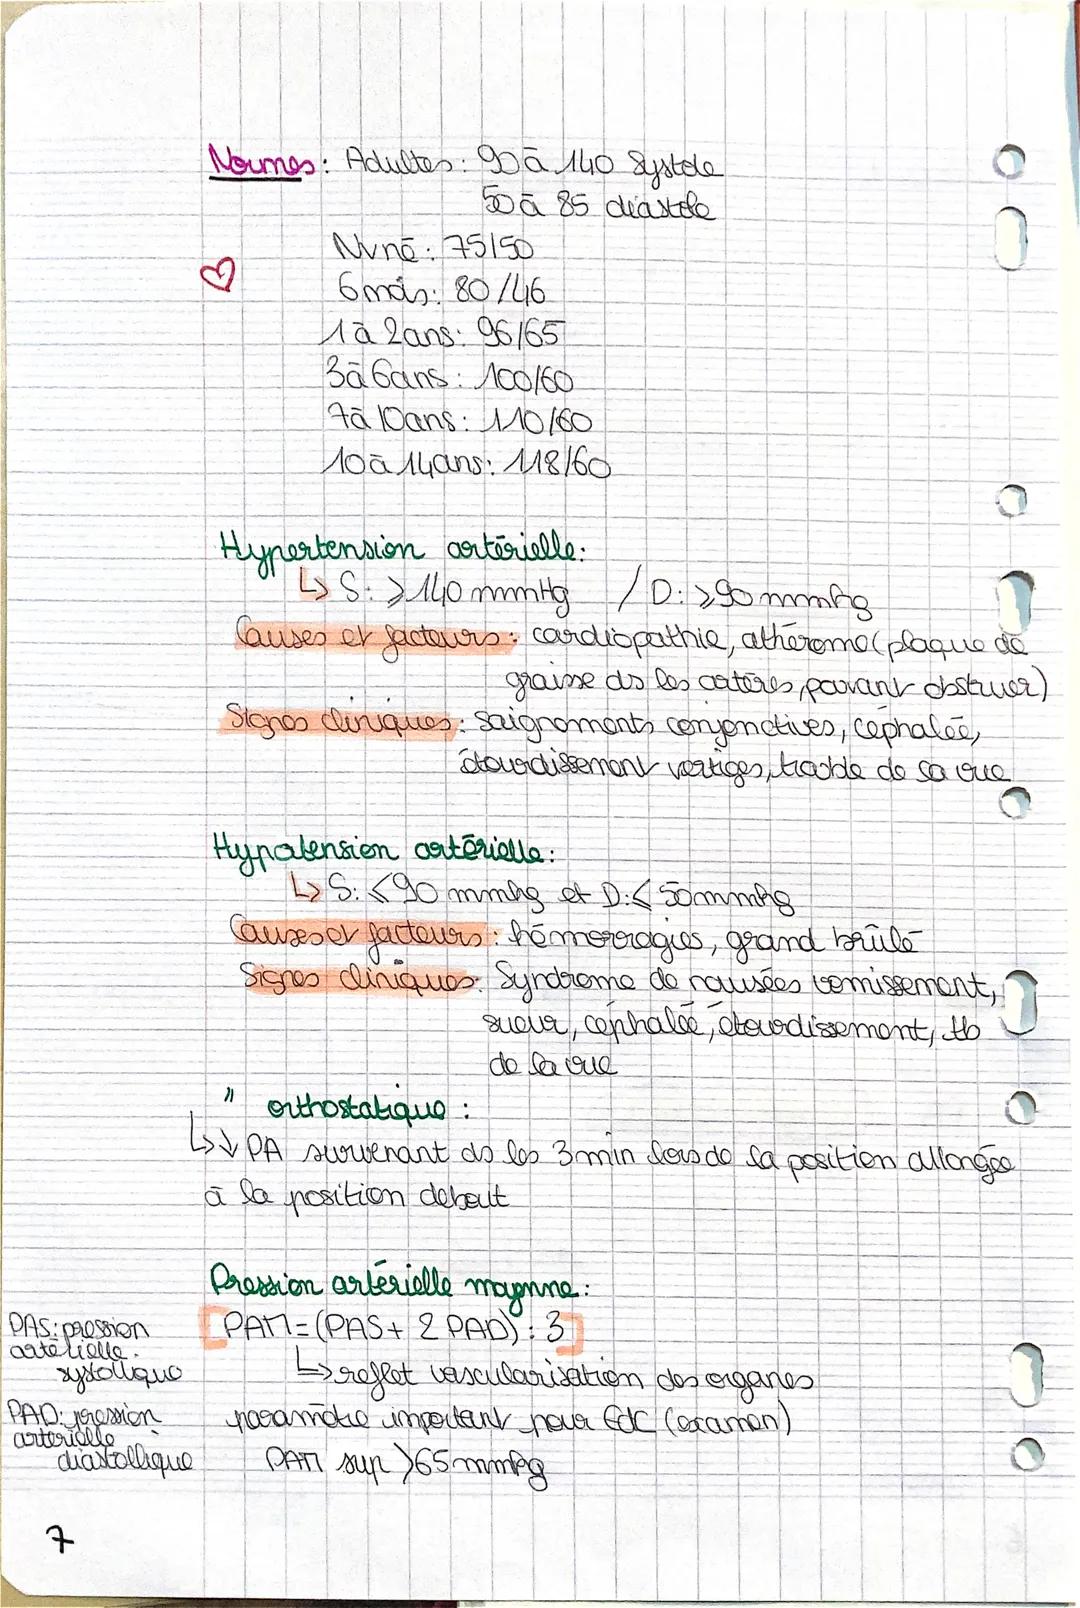 Normes : Adultes : 90 à 140 Systole
50 à 85 diastole
Nvné : 75/50
6 mois : 80/46
1 à 2 ans : 96/65
3 à 6 ans : 100/60
7 à 10 ans : 110/60
10 à 14 ans : 118/60
Hypertension artérielle :
↳ S : ⩾ 140 mmHg / D : ⩾ 90 mmhg
Causes et facteurs : cardiopathie, athérome (plaque de
graisse ds les artères, pouvant obstruer)
Signes cliniques : saignements conjonctives, céphalée,
étourdissement vertiges, trouble de sa vue
Hypotension artérielle :
↳ S : ⩽ 90 mmhg et D : ⩽ 50 mmhg
Causes et facteurs : hémorragies, grand brûlé
Signes cliniques : Syndrome de nausées vomissement,
sueur, céphalée, étourdissement, tb
de la vue
" orthostatique :
↳ ↓ PA survenant ds les 3 min lors de la position allongée
à la position debout
Pression artérielle moyenne :
[PAM = (PAS + 2 PAD) : 3]
↳ reflet vascularisation des organes
paramètre important pour EdC (examen)
PAM sup > 65 mmhg
PAS : pression
artérielle
systollique
PAD : pression
artérielle
diastollique
7